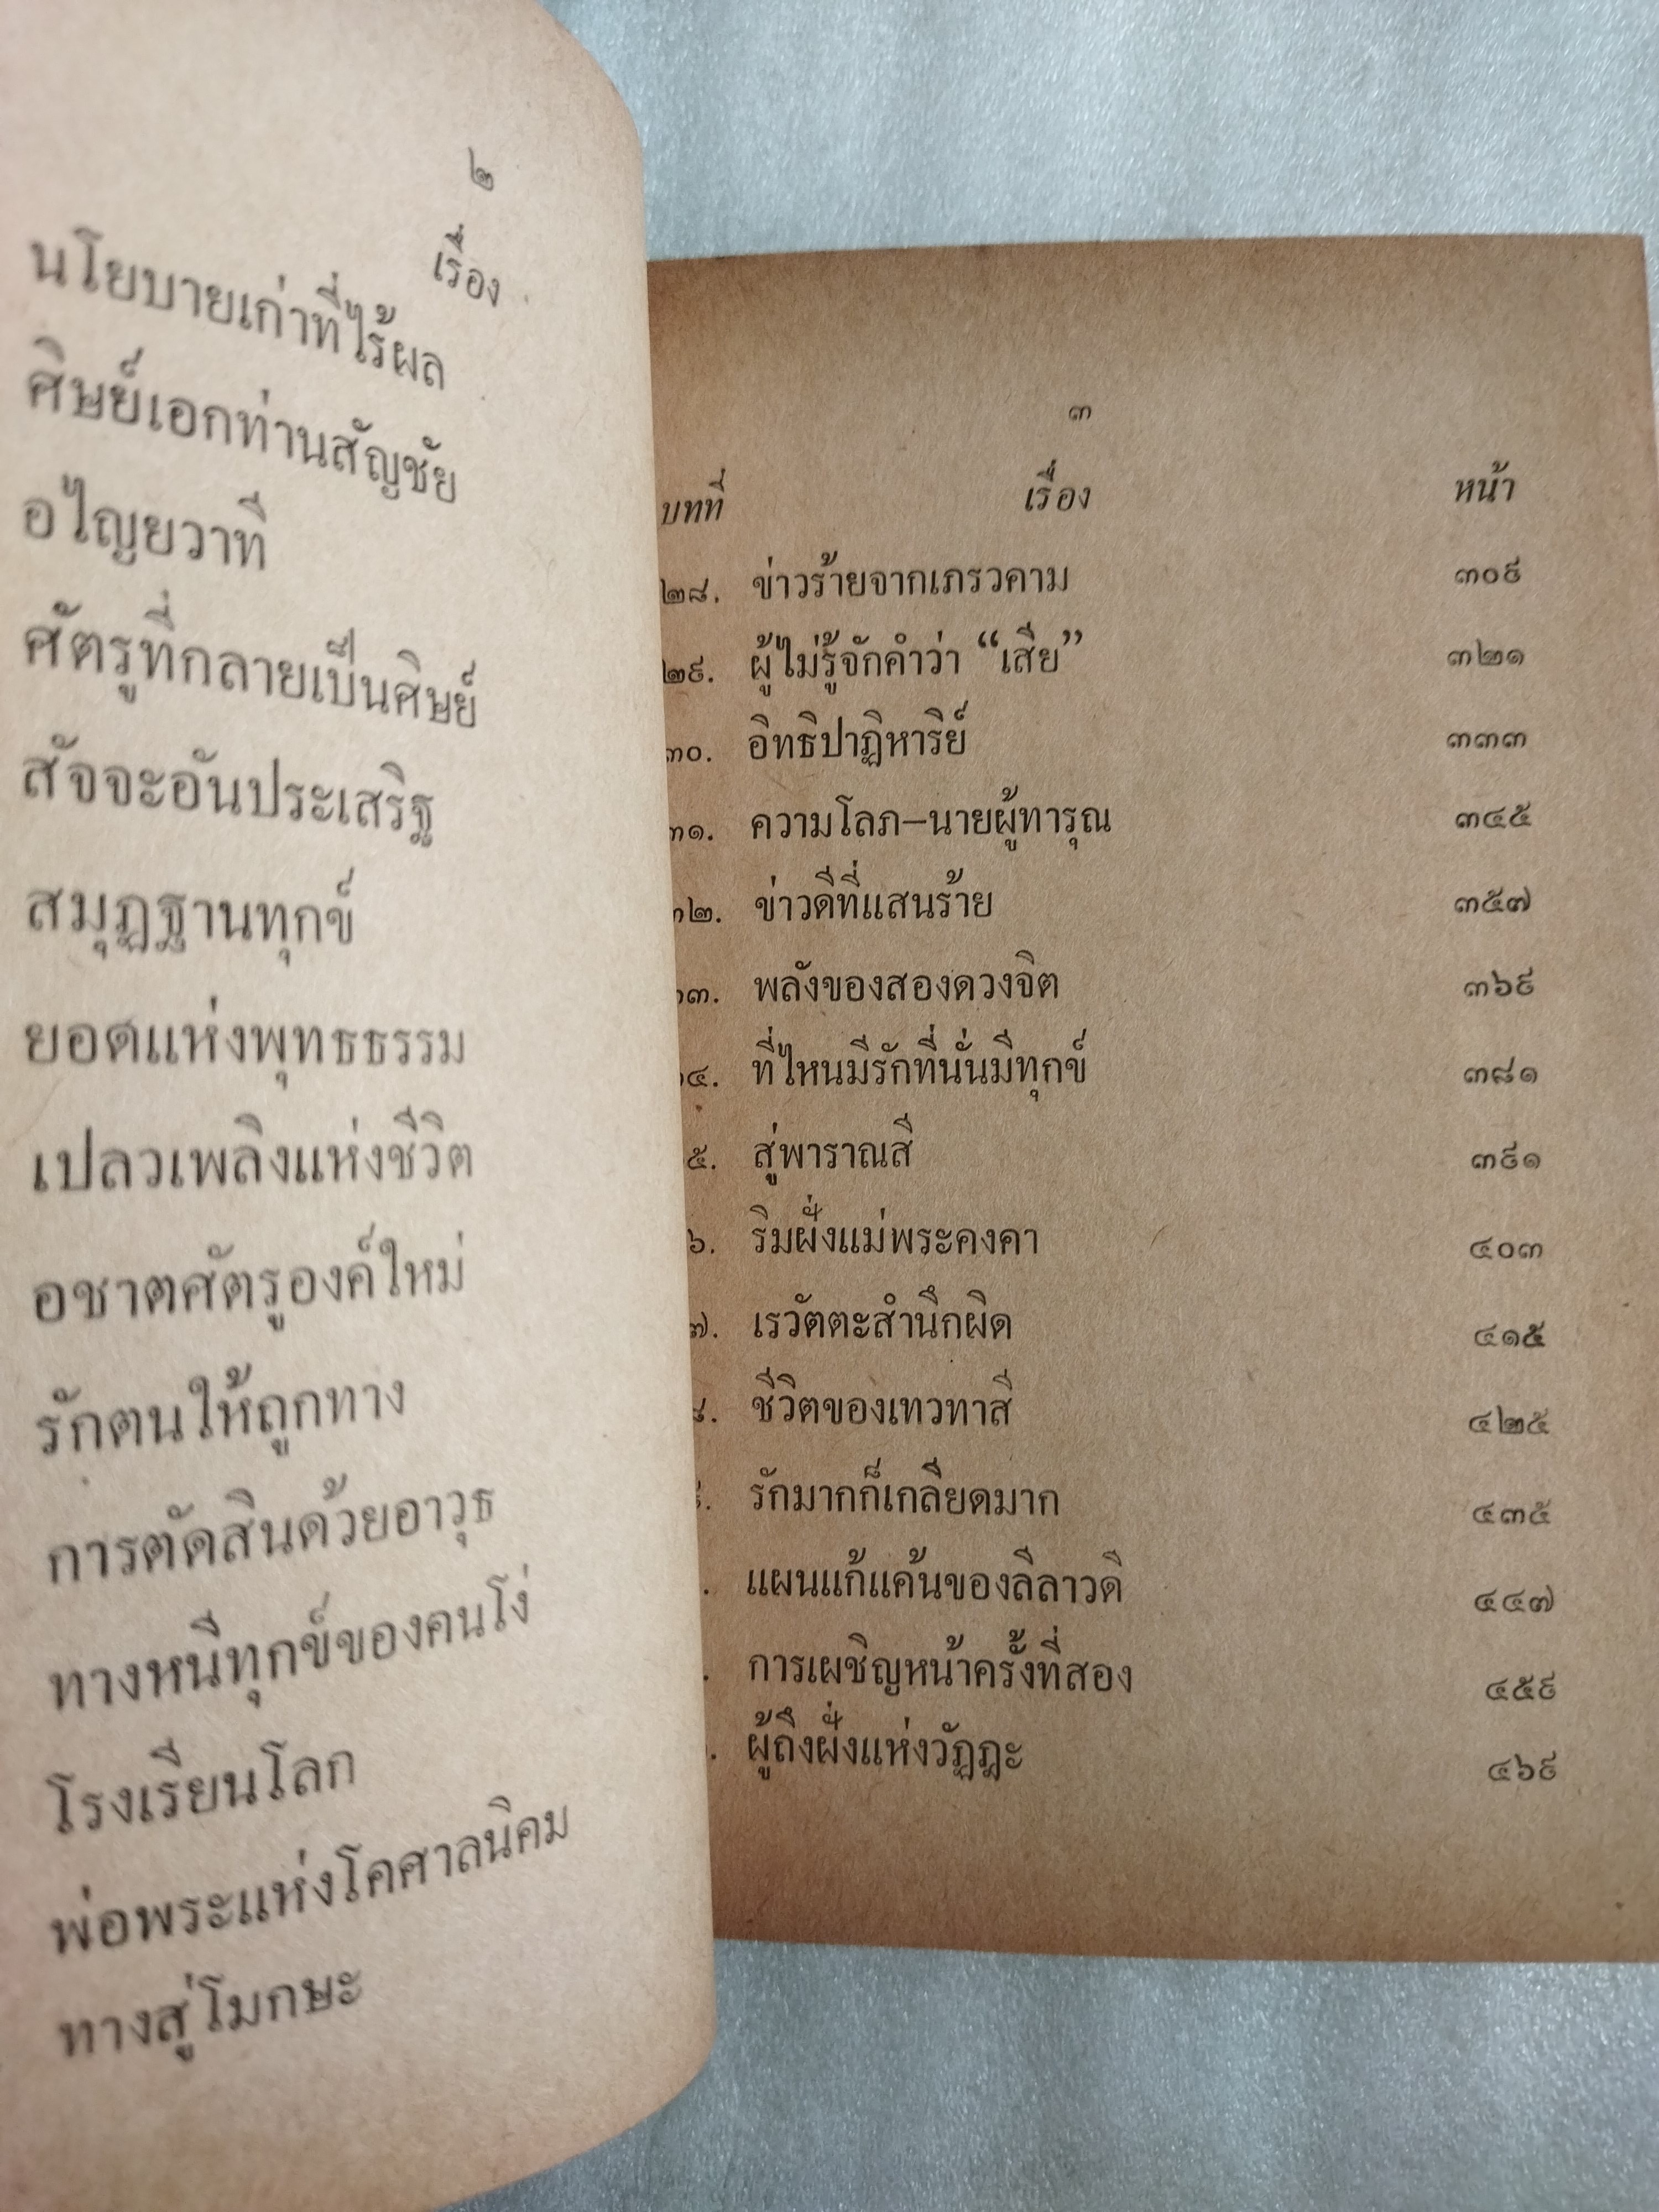 ๒
เรื่อง
นโยบายเก่าที่ไร้ผล
ศิษย์เอกท่านสัญชัย
อไญยวาที
ศัตรูที่กลายเป็นศิษย์
สัจจะอันประเสริฐ
สมุฏฐานทุกข์
ยอดแห่งพุทธธรรม
เปลวเพลิงแห่งชีวิต
อชาตศัตรูองค์ใหม่
รักตนให้ถูกทาง
การตัดสินด้วยอาวุธ
ทางหนีทุกข์ของคนโง่
โรงเรียนโลก
พ่อพระแห่งโคศาลนิคม
ทางสู่โมกษะ
๓
บทที่ เรื่อง หน้า
๒๘. ข่าวร้ายจากเภรวคาม ๓๐๙
๒๙. ผู้ไม่รู้จักคำว่า “เสีย” ๓๒๑
๓๐. อิทธิปาฏิหาริย์ ๓๓๓
๓๑. ความโลภ–นายผู้ทารุณ ๓๔๕
๓๒. ข่าวดีที่แสนร้าย ๓๕๗
๓. พลังของสองดวงจิต ๓๖๙
๔. ที่ไหนมีรักที่นั่นมีทุกข์ ๓๘๑
๕. สู่พาราณสี ๓๙๑
๖. ริมฝั่งแม่พระคงคา ๔๐๓
๗. เรวัตตะสำนึกผิด ๔๑๕
๘. ชีวิตของเทวทาสี ๔๒๕
๙. รักมากก็เกลียดมาก ๔๓๕
. แผนแก้แค้นของลีลาวดี ๔๔๗
. การเผชิญหน้าครั้งที่สอง ๔๕๙
. ผู้ถึงฝั่งแห่งวัฏฏะ ๔๖๙